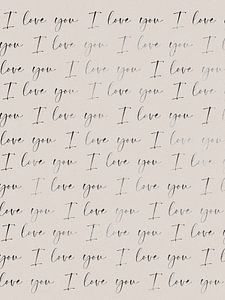 I love you I love you I love you
you I love you I love you I
love you I love you I love you
you I love you I love you I
love you I love you I love you
love you I love you I love you
I love you I love you I love you
you I love you I love you I
love you I love you I love you
you I love you I love you I
love you I love you I love you